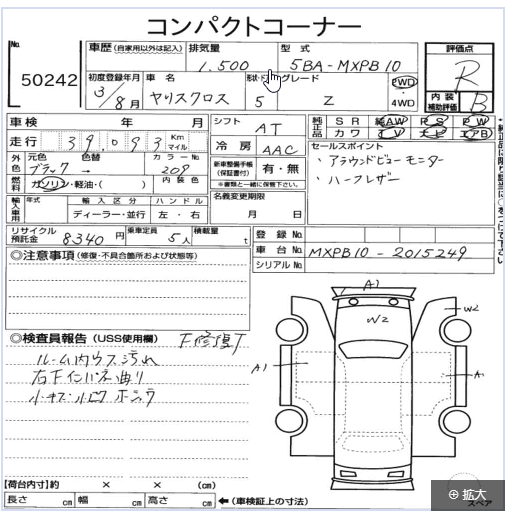 コンパクトコーナー
No. 50242
車歴 (自家用以外は記入)
排気量 1,500
型式 5BA-MXPB10
評価点 R
初度登録年月 3/8月
車名 ヤリスクロス
形状・ドア 5
グレード Z
2WD
4WD
内装補助評価 B
車検 年 月
シフト AT
純正品 SR 純AW PS PW
カワ TV ナビ エアB
走行 39,093 Km マイル
冷房 AAC
セールスポイント
・アラウンドビューモニター
・ハーフレザー
外色 元色 色替 カラーNo.
ブラック → 209
新車整備手帳(保証書付) 有・無
※書類と一緒に保管下さい。
燃料 ガソリン・軽油・( ) 内装色
名義変更期限
月 日
輸入車用 年式 輸入区分 ハンドル
ディーラー・並行 左・右
リサイクル預託金 8340円
乗車定員 5人
積載量 t
登録No.
車台No. MXPB10-2015249
シリアルNo.
◎注意事項 (修復・不具合箇所および状態等)
◎検査員報告 (USS使用欄)
ルーム内ウス汚れ
A1
W2
W2
A1
A1
【荷台内寸】約 × × (cm)
長さ cm 幅 cm 高さ cm
←(車検証上の寸法)
拡大
スペア